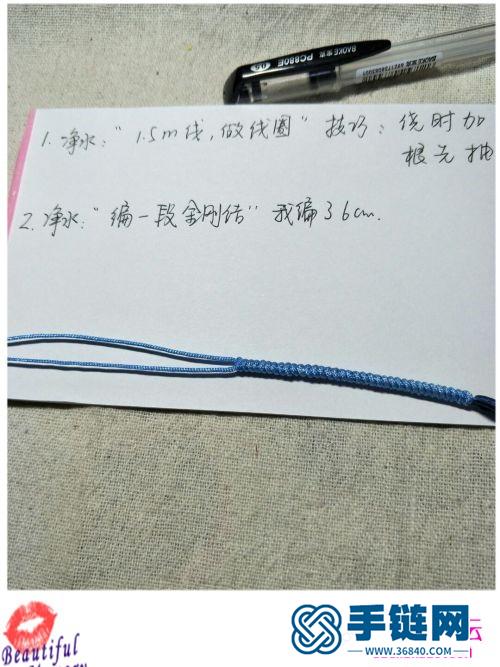 BAOKE 宝克
PC880E
0.5
1. 净水："1.5m线,做线圈" 技巧：绕时加
根先抽
2. 净水："编一段金刚结" 我编36cm.
Beautiful
手链网
www.36840.com